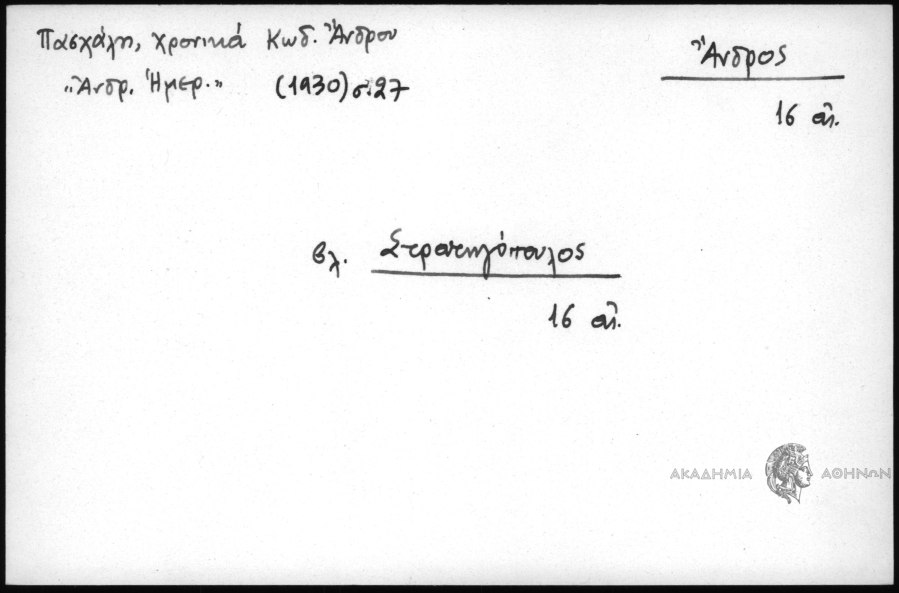 Πασχάλη, χρονικά Κωδ. Ἄνδρου
„Ἄνδρ. Ἡμερ.” (1930) σ. 27
Ἄνδρος
16 αἰ.
βλ. Στρατηγόπουλος
16 αἰ.
ΑΚΑΔΗΜΙΑ ΑΘΗΝΩΝ